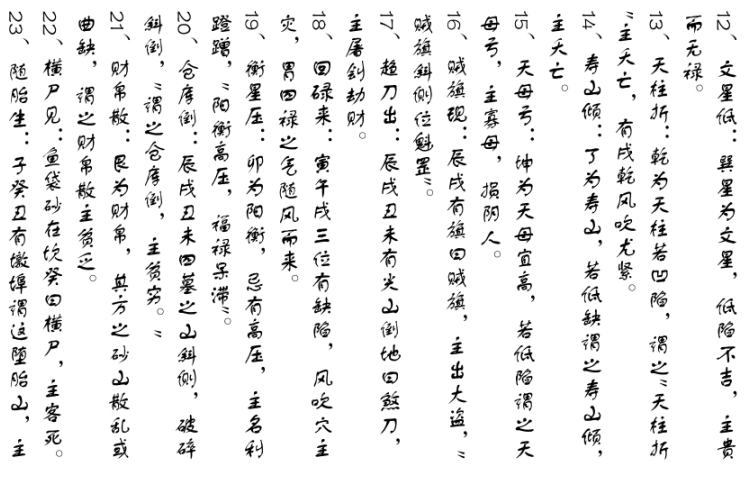 12、文星低：巽星为文星，低陷不吉，主贵
而无禄。
13、天柱折：乾为天柱若凹陷，谓之"天柱折
"主夭亡，有戌乾风吹尤紧。
14、寿山倾：丁为寿山，若低缺谓之寿山倾，
主夭亡。
15、天母亏：坤为天母宜高，若低陷谓之天
母亏，主寡母，损阴人。
16、贼旗现：辰戌有旗曰贼旗，主出大盗，"
贼旗斜侧位魁罡"。
17、趋刀出：辰戌丑未有尖山倒地曰煞刀，
主屠刽劫财。
18、回禄来：寅午戌三位有缺陷，风吹穴主
灾，胃四禄之气随风而来。
19、衡星压：卯为阳衡，忌有高压，主名利
蹬蹭，"阳衡高压，福禄呆滞"。
20、仓库倒：辰戌丑未四墓之山斜侧，破碎
斜倒，"谓之仓库倒，主贫穷。"
21、财帛散：艮为财帛，其方之砂山散乱或
曲缺，谓之财帛散主贫乏。
22、横尸见：鱼袋砂在坎癸曰横尸，主客死。
23、随胎生：子癸丑有墩埠谓这堕胎山，主